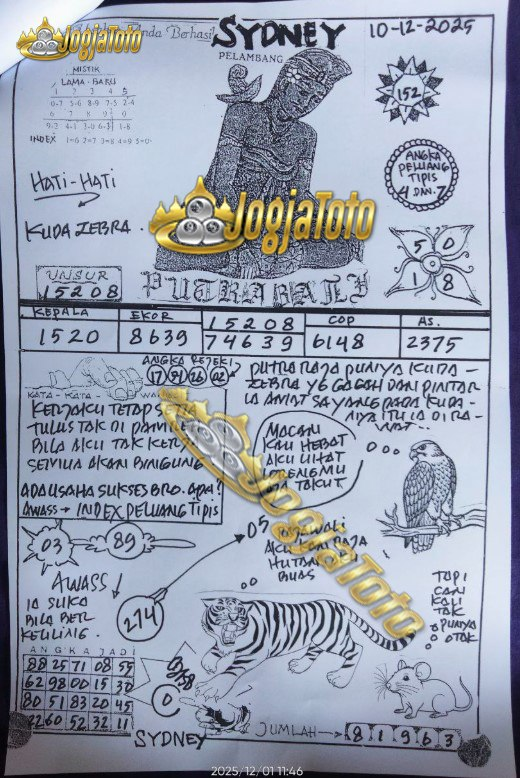 JOGJATOTO
nda Berhasil
SYDNEY
10-12-2025
PELAMBANG
MISTIK
LAMA - BARU
1 2 3 4 5
0-7 5-6 8-9 7-5 2-4
6 7 8 9 0
9-2 4-1 3-0 6-3 1-8
INDEX 1=6 2=7 3=8 4=9 5=0
152
ANGKA
PELUANG
TIPIS
4 DAN 7
HATI-HATI
KUDA ZEBRA..
JOGJATOTO
5 0
0
1 8
UNSUR
15208
PUTRA BALI
KEPALA
EKOR
15208
COP
AS.
1520
8639
74639
6148
2375
ANGKA REJEKI
17 91 26 02
KATA - KATA
KERJAKU TETAP
TULUS TAK DI
BILA AKU TAK
SEMUA AKAN BINGUNG
ADA USAHA SUKSES BRO. APA?
AWASS → INDEX PELUANG TIPIS
PUTRA RAJA PUNYA KUDA -
ZEBRA YG GAGAH DAN PINTAR
IA AMAT SAYANG PADA KUDA -
NYA ITU IA DI RA -
WAT..
MACAN
KAU HEBAT
AKU LIHAT
LORENGMU
TAKUT
JOGJATOTO
03
89
05
AKU
HUTAN
BUAS
AWASS
IA SUKA
BILA BTL
KELILING.
274
TAPI
KAU
TAK
PUNYA
OTAK
ANGKA JADI
88 25 71 08 55
62 98 00 15 30
80 51 83 20 45
22 60 52 32 11
0
SYDNEY
JUMLAH → 8 1 9 6 3
2025/12/01 11:46